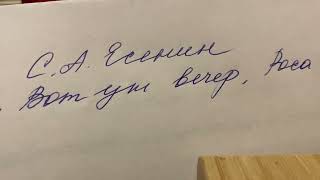 С. А. Есенин
Вот уж вечер. Роса